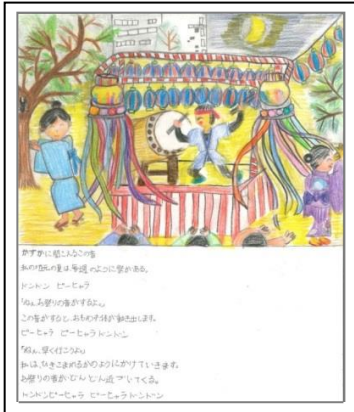 かすかに聞こえるこの音
私の地元の夏は毎週のように祭がある。
ドンドン ピーヒャラ
「ねえ、お祭りの音がするよ。」
この音がすると、おもわず体が動き出します。
ピーヒャラ ピーヒャラ ドンドン
「ねえ、早く行こうよ。」
私は、ひきこまれるかのようにかけていきます。
お祭りの音がどんどん近づいてくる。
ドンドンピーヒャラ ピーヒャラドンドン